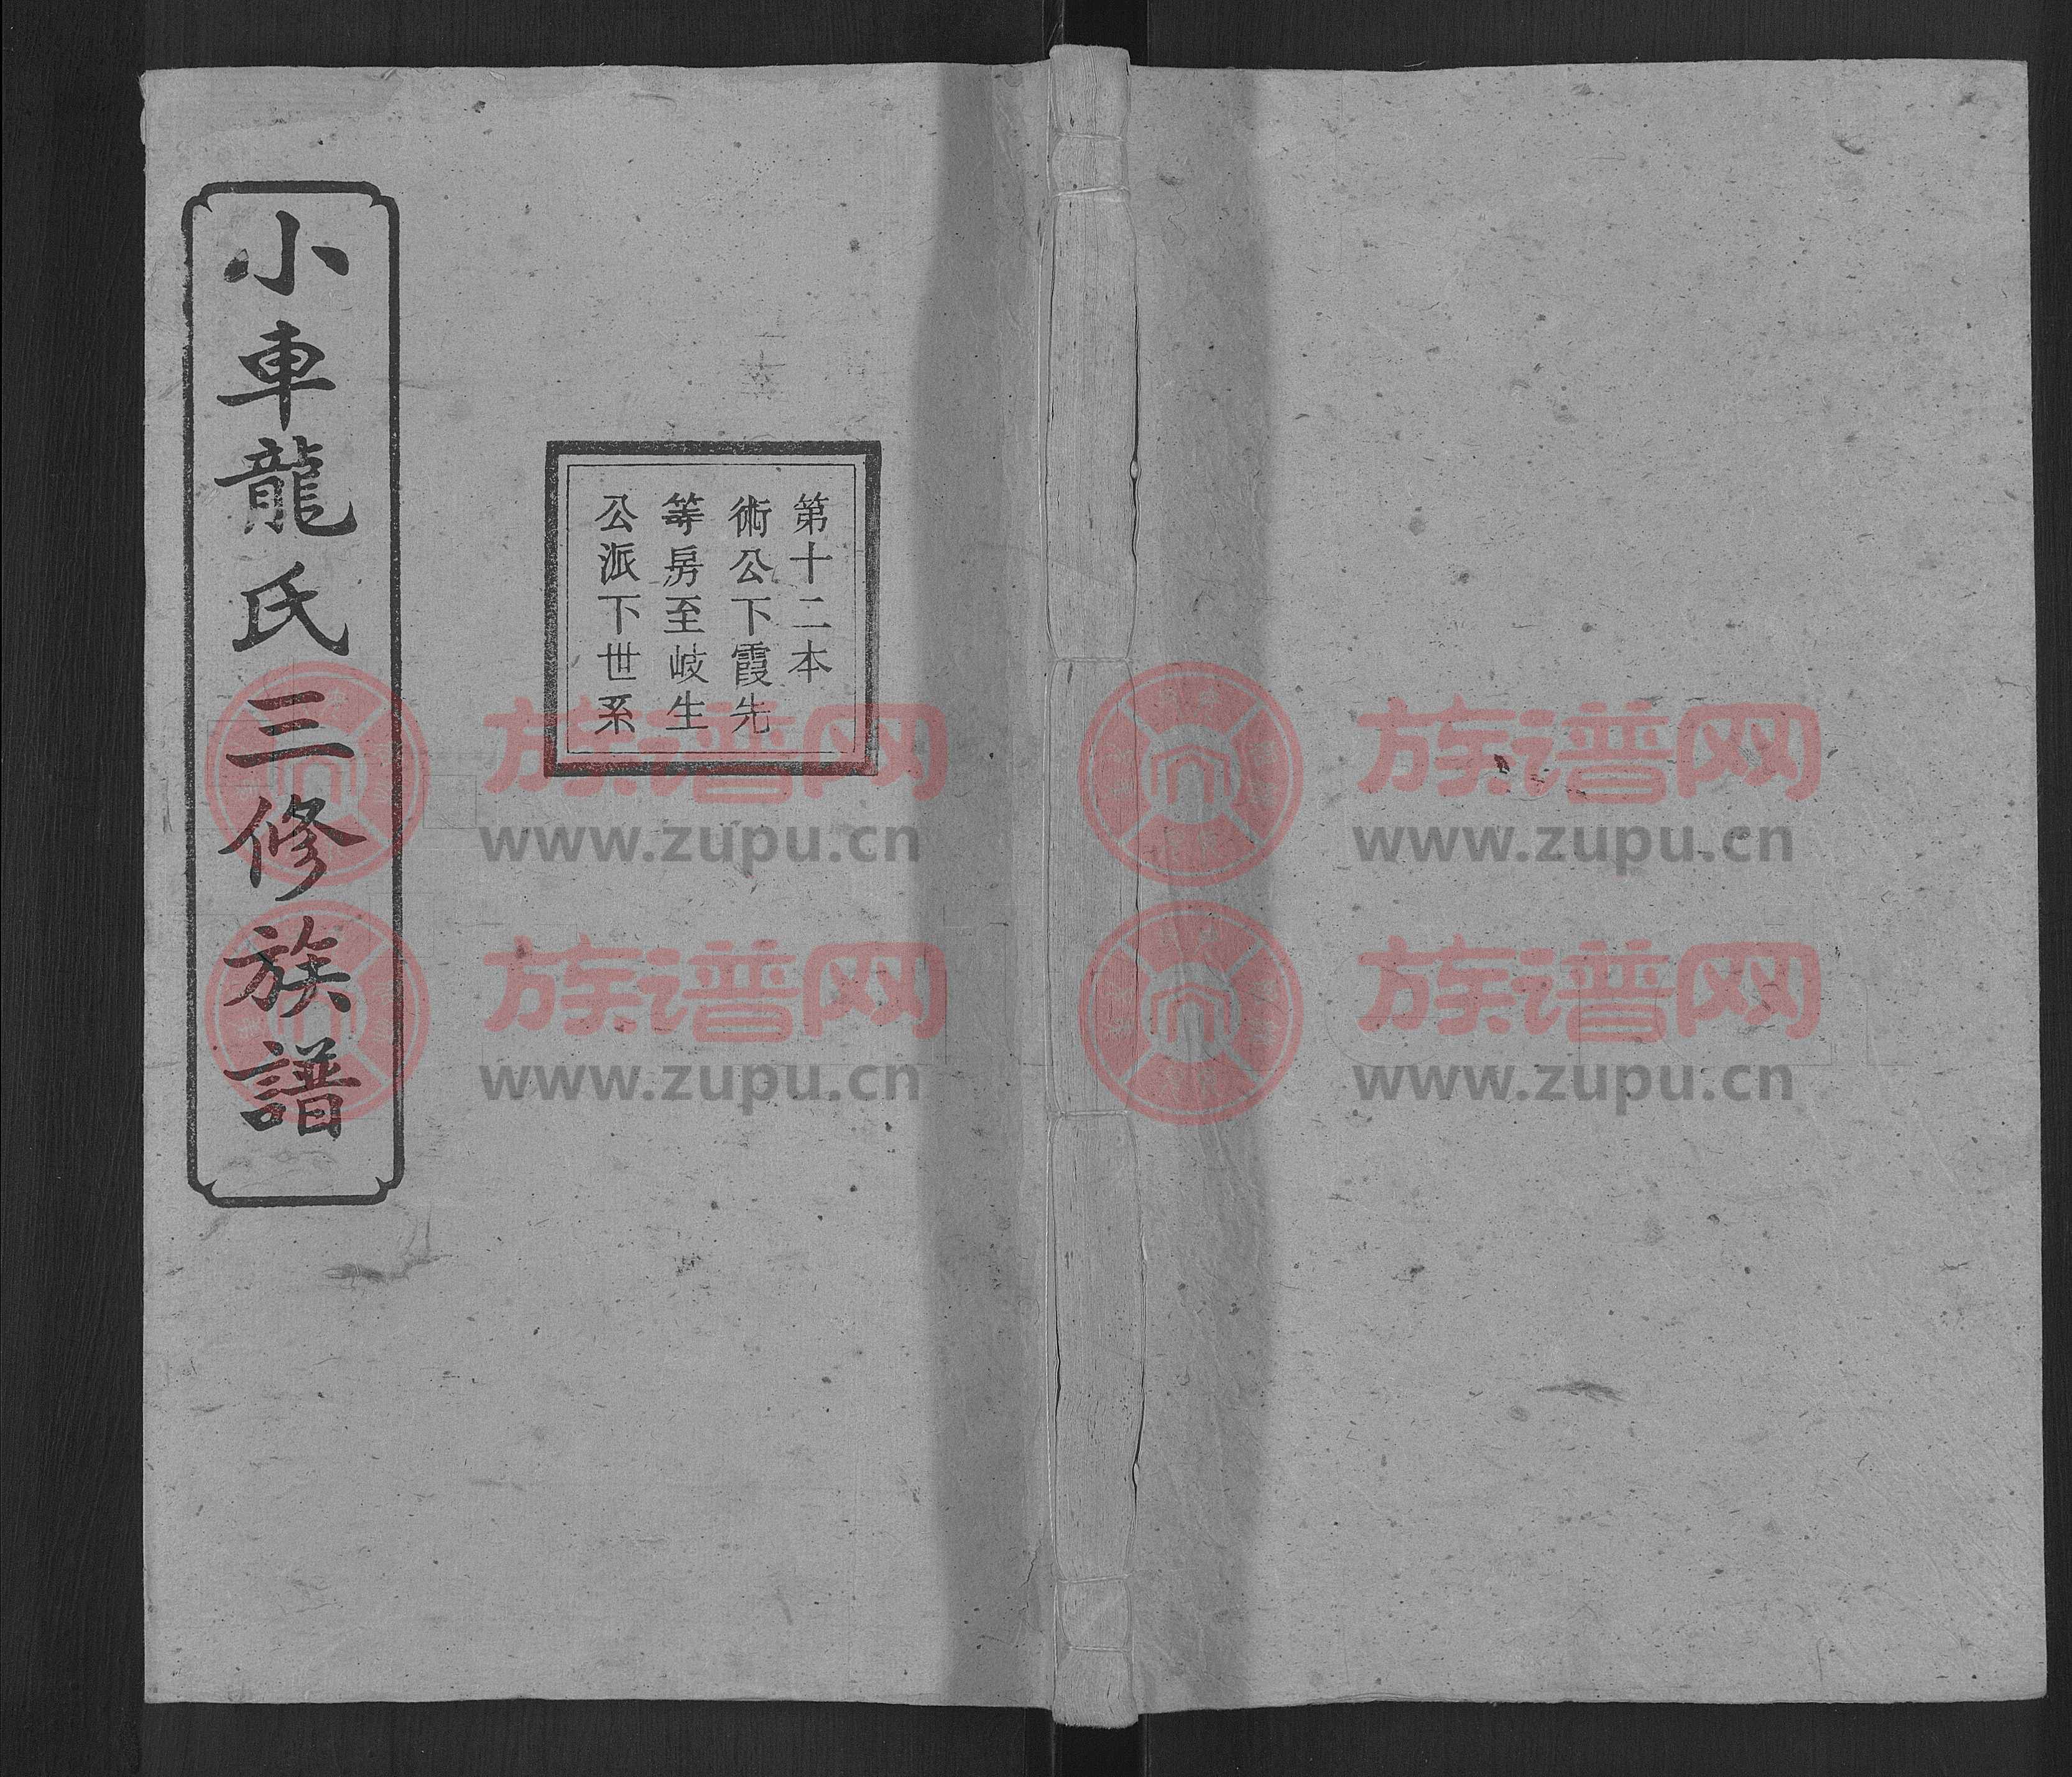 小車龍氏三修族譜
第十二本
術公下霞先
等房至岐生
公派下世系
族谱网
www.zupu.cn
族谱网
www.zupu.cn
族谱网
www.zupu.cn
族谱网
www.zupu.cn